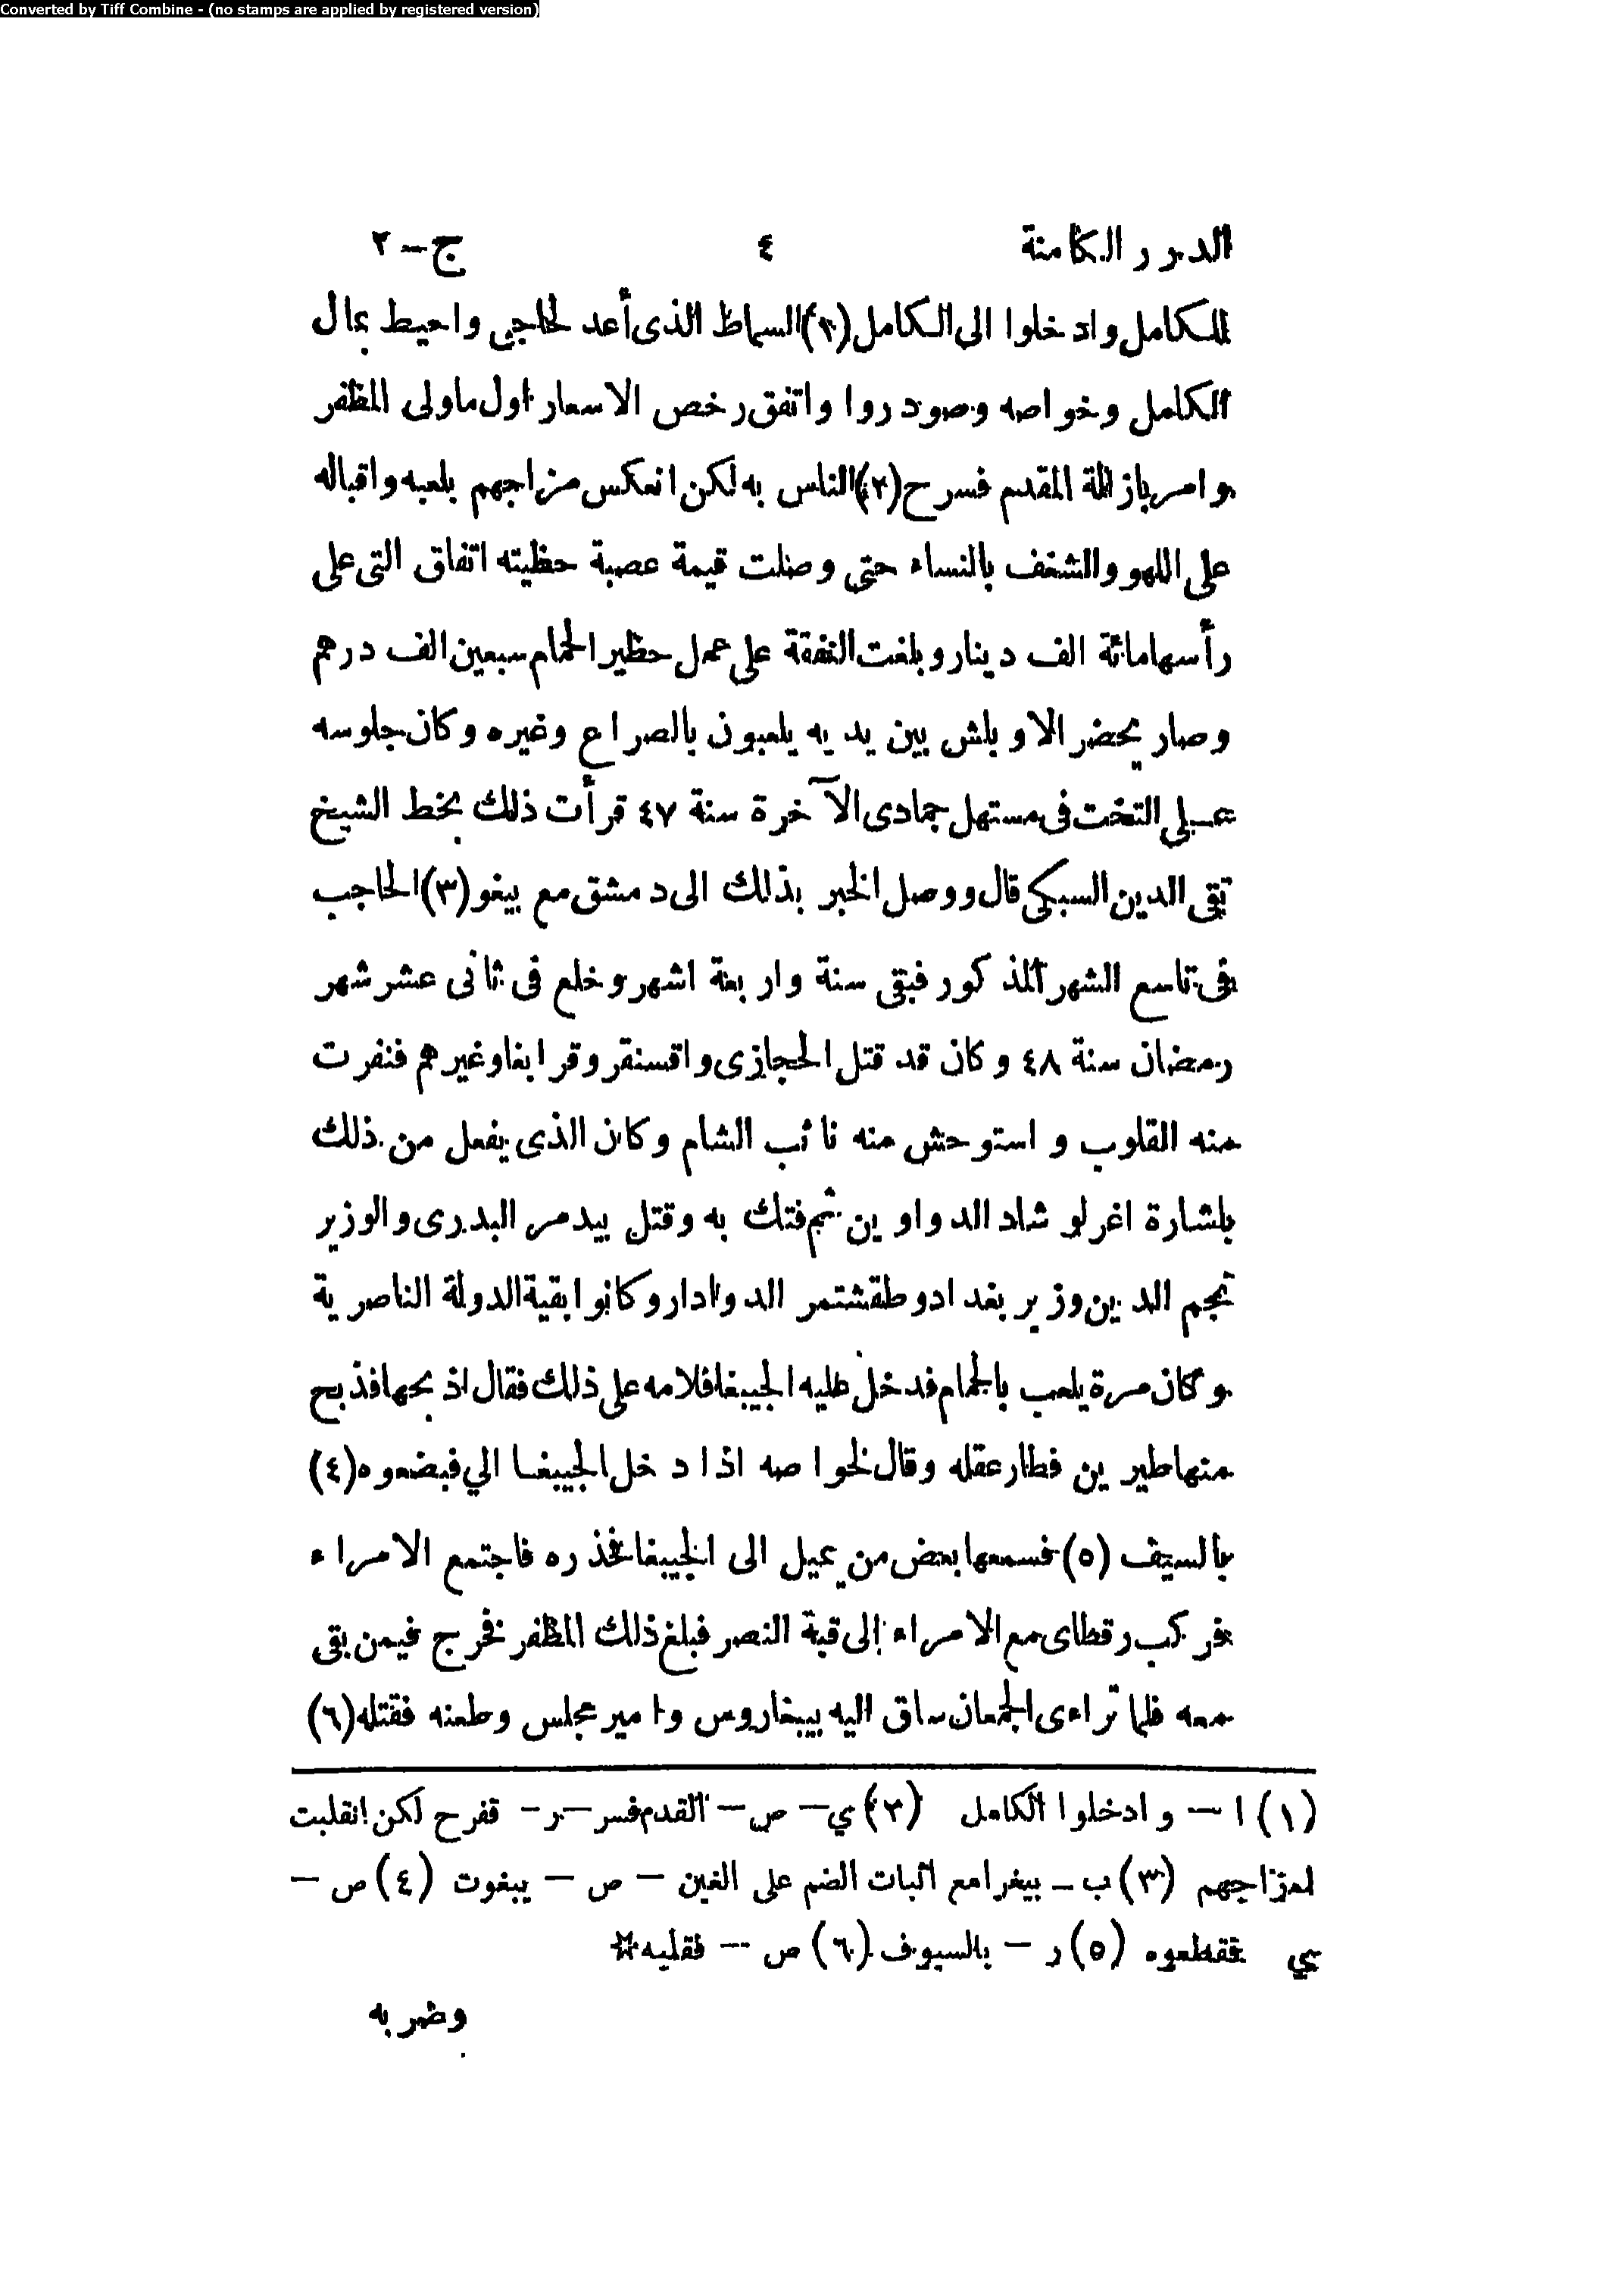 Converted by Tiff Combine - (no stamps are applied by registered version)
الدرر الكامنة ٤ ج-٢
للكامل وادخلوا الى الكامل (١) السماط الذى أعد لحاجى واحيط بمال
الكامل وخواصه وصودروا واتفق رخص الاسعار اول ما ولى المظفر
وامر بازالة المقدم فسرح (٢) الناس به لكن انعكس مزاجهم بلعبه واقباله
على اللهو والشغف بالنساء حتى وصلت قيمة عصبة حظيته اتفاق التى على
رأسها مائة الف دينار وبلغت النفقة على عمل حظير الحمام سبعين الف درهم
وصار يحضر الاوباش بين يديه يلعبون بالصراع وغيره وكان جلوسه
على التخت فى مستهل جمادى الآخرة سنة ٤٧ قرأت ذلك بخط الشيخ
تقى الدين السبكى قال ووصل الخبر بذلك الى دمشق مع بيغو (٣) الحاجب
فى تاسع الشهر المذكور فبقى سنة واربعة اشهر وخلع فى ثانى عشر شهر
رمضان سنة ٤٨ وكان قد قتل الحجازى واقسنقر وقرابغا وغيرهم فنفرت
منه القلوب واستوحش منه نائب الشام وكان الذى يفعل من ذلك
باشارة اغرلو شاد الدواوين ثم فتك به وقتل بيدمر البدرى والوزير
نجم الدين وزير بغداد وطقشتمر الدوادار وكانوا بقية الدولة الناصرية
وكان مرة يلعب بالحمام فدخل عليه الجيبغا فلامه على ذلك فقال اذبحها فذبح
منها طيرين فطار عقله وقال لخواصه اذا دخل الجيبغا الي فبضعوه (٤)
بالسيف (٥) فسمعها بعض من يميل الى الجيبغا فحذره فاجتمع الامراء
فركب رقطاى مع الامراء إلى قبة النصر فبلغ ذلك المظفر فخرج فيمن بقى
معه فلما تراءى الجمعان ساق اليه بيبغاروس وامير مجلس وطعنه فقتله (٦)
(١) ا – وادخلوا الكامل (٢) ي – ص – القدم فسر – ر – قفرح لكن انقلبت
امزاجهم (٣) ب – بيغرا مع اثبات الضم على الغين – ص – يبغوت (٤) ص –
ي فقطعوه (٥) ر – بالسيوف (٦) ص – فقلبه*
وضربه